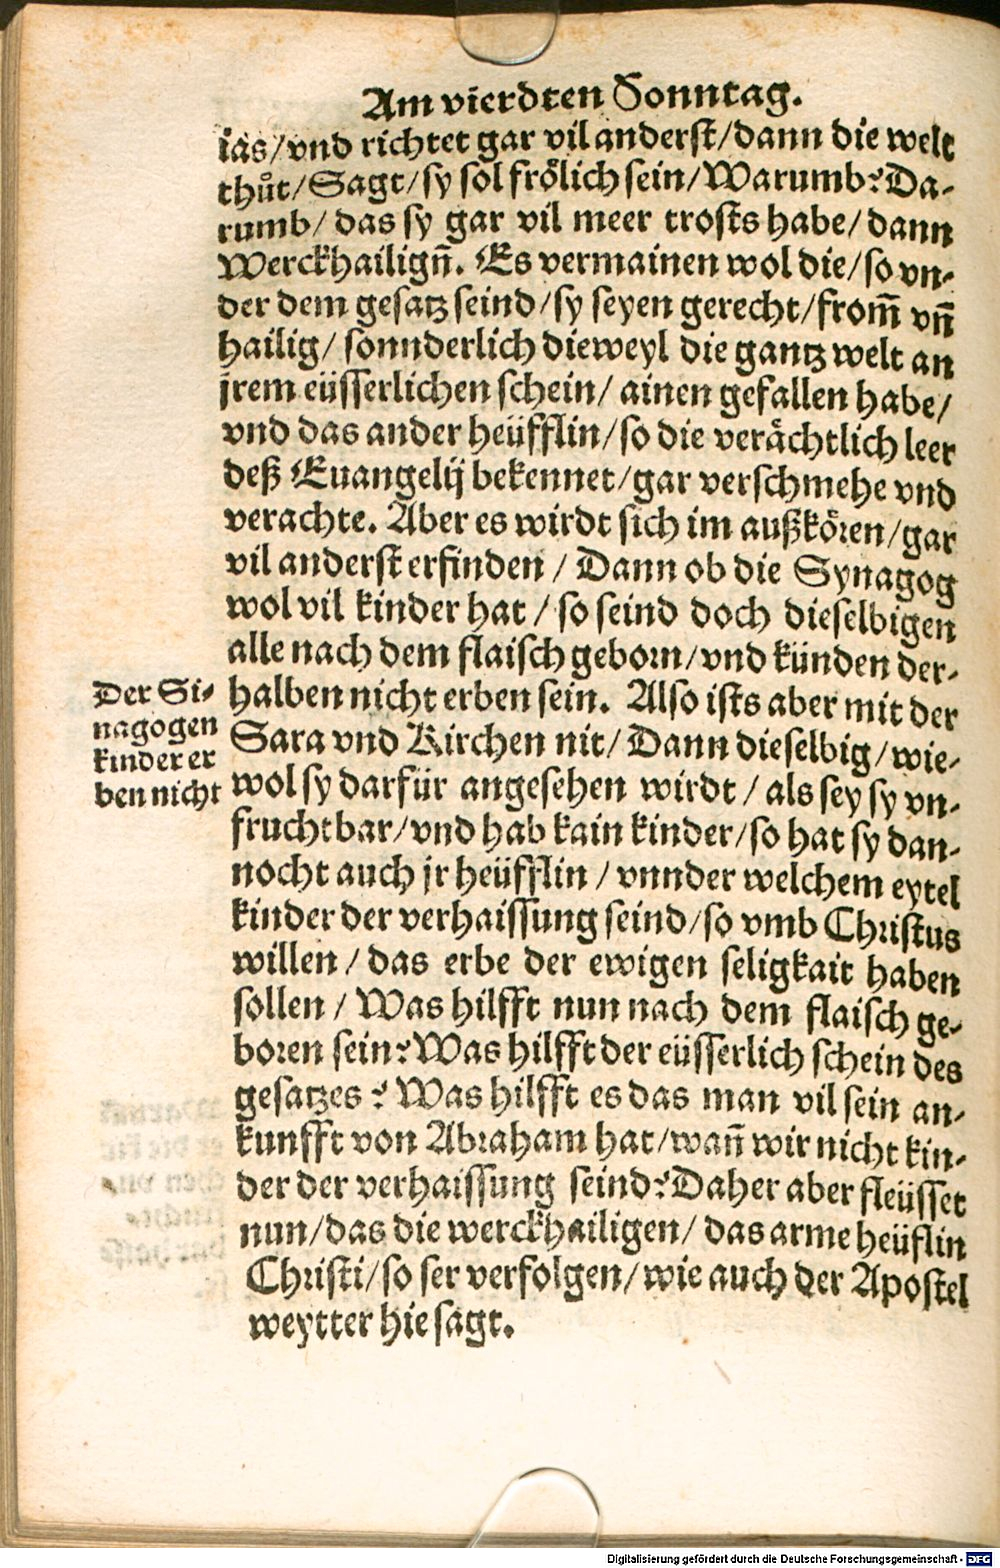 Am vierdten Sonntag.
ias/vnd richtet gar vil anderst/dann die welt
thuͦt/Sagt/sy sol frölich sein/Warumb? Da-
rumb/ das sy gar vil meer trosts habe/ dann
Werckhailigñ. Es vermainen wol die/so vn-
der dem gesatz seind/sy seyen gerecht/from̃ vñ
hailig/ sonnderlich dieweyl die gantz welt an
jrem eüsserlichen schein/ ainen gefallen habe/
vnd das ander heüfflin/so die verächtlich leer
deß Euangelij bekennet/gar verschmehe vnd
verachte. Aber es wirdt sich im außkören/gar
vil anderst erfinden / Dann ob die Synagog
wol vil kinder hat / so seind doch dieselbigen
alle nach dem flaisch geborn/vnd künden der-
halben nicht erben sein. Also ists aber mit der
Der Si-
nagogen
kinder er
ben nicht
Sara vnd Kirchen nit/ Dann dieselbig/wie-
wol sy darfür angesehen wirdt / als sey sy vn-
fruchtbar/vnd hab kain kinder/so hat sy dan-
nocht auch jr heüfflin / vnnder welchem eytel
kinder der verhaissung seind/so vmb Christus
willen / das erbe der ewigen seligkait haben
sollen / Was hilfft nun nach dem flaisch ge-
boren sein? Was hilfft der eüsserlich schein des
gesatzes ? Was hilfft es das man vil sein an-
kunfft von Abraham hat/wañ wir nicht kin-
der der verhaissung seind? Daher aber fleüsset
nun/das die werckhailigen/ das arme heüflin
Christi/so ser verfolgen/wie auch der Apostel
weytter hie sagt.
Digitalisierung gefördert durch die Deutsche Forschungsgemeinschaft - DFG